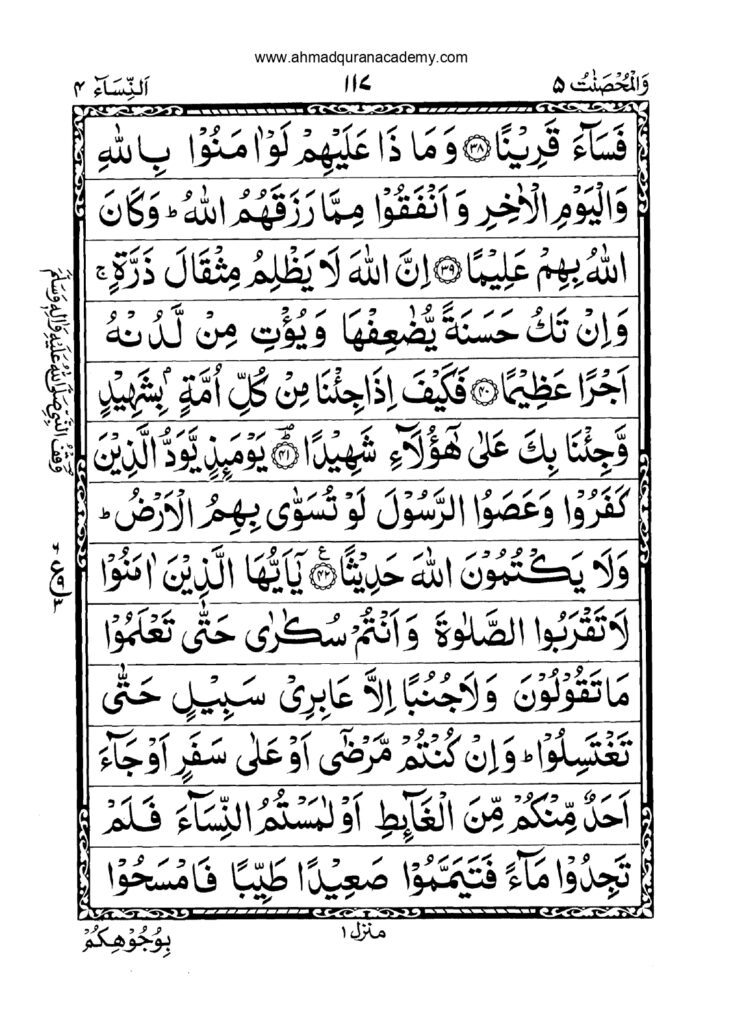 www.ahmadquranacademy.com
وَالْمُحْصَنٰتُ ۵
۱۱۷
اَلنِّسَآء ۴
فَسَآءَ قَرِيْنًا ﴿۳۸﴾ وَمَا ذَا عَلَيْهِمْ لَوْ اٰمَنُوْا بِاللّٰهِ
وَالْيَوْمِ الْاٰخِرِ وَاَنْفَقُوْا مِمَّا رَزَقَهُمُ اللّٰهُ ؕ وَكَانَ
اللّٰهُ بِهِمْ عَلِيْمًا ﴿۳۹﴾ اِنَّ اللّٰهَ لَا يَظْلِمُ مِثْقَالَ ذَرَّةٍ ۚ
وَاِنْ تَكُ حَسَنَةً يُّضٰعِفْهَا وَيُؤْتِ مِنْ لَّدُنْهُ
اَجْرًا عَظِيْمًا ﴿۴۰﴾ فَكَيْفَ اِذَا جِئْنَا مِنْ كُلِّ اُمَّةٍۭ بِشَهِيْدٍ
وَّجِئْنَا بِكَ عَلٰى هٰٓؤُلَآءِ شَهِيْدًا ﴿۴۱﴾ يَوْمَئِذٍ يَّوَدُّ الَّذِيْنَ
كَفَرُوْا وَعَصَوُا الرَّسُوْلَ لَوْ تُسَوّٰى بِهِمُ الْاَرْضُ ؕ
وَلَا يَكْتُمُوْنَ اللّٰهَ حَدِيْثًا ﴿۴۲﴾ ع يٰۤاَيُّهَا الَّذِيْنَ اٰمَنُوْا
لَا تَقْرَبُوا الصَّلٰوةَ وَاَنْتُمْ سُكٰرٰى حَتّٰى تَعْلَمُوْا
مَا تَقُوْلُوْنَ وَلَا جُنُبًا اِلَّا عَابِرِيْ سَبِيْلٍ حَتّٰى
تَغْتَسِلُوْا ؕ وَاِنْ كُنْتُمْ مَّرْضٰۤى اَوْ عَلٰى سَفَرٍ اَوْ جَآءَ
اَحَدٌ مِّنْكُمْ مِّنَ الْغَآئِطِ اَوْ لٰمَسْتُمُ النِّسَآءَ فَلَمْ
تَجِدُوْا مَآءً فَتَيَمَّمُوْا صَعِيْدًا طَيِّبًا فَامْسَحُوْا
وَقْفُ النَّبِيِّ صَلَّى اللّٰهُ عَلَيْهِ وَاٰلِهٖ وَسَلَّمَ
منزل ۱
بِوُجُوْهِكُمْ